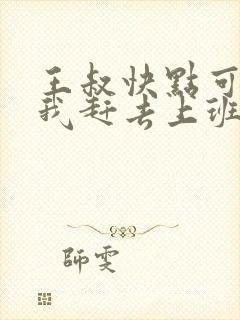 王叔快點可
我赶去上班
師雯